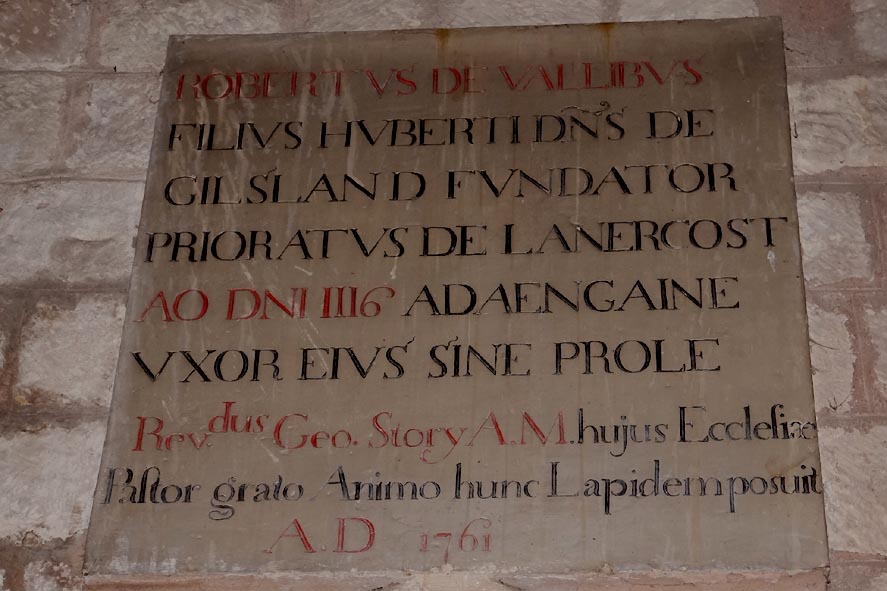 ROBERTVS DE VALLIBVS
FILIVS HVBERTI DÑS DE
GILSLAND FVNDATOR
PRIORATVS DE LANERCOST
AO DNI 1116 ADAENGAINE
VXOR EIVS SINE PROLE
Rev.dus Geo. Story A.M. hujus Eccleſiae
Paſtor grato Animo hunc Lapidem posuit
A.D 1761